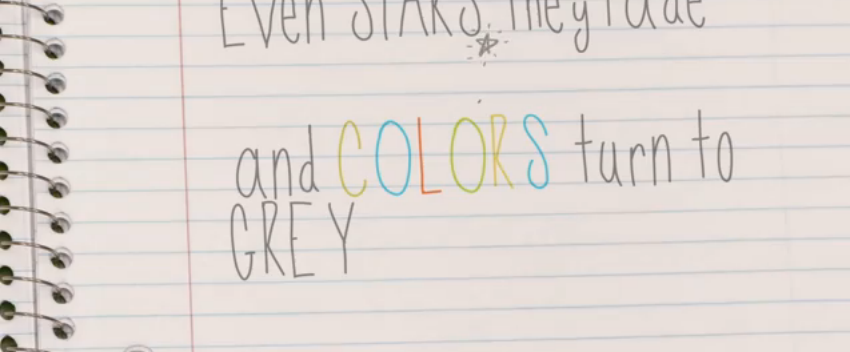 Even STARS, they fade
and COLORS turn to
GREY